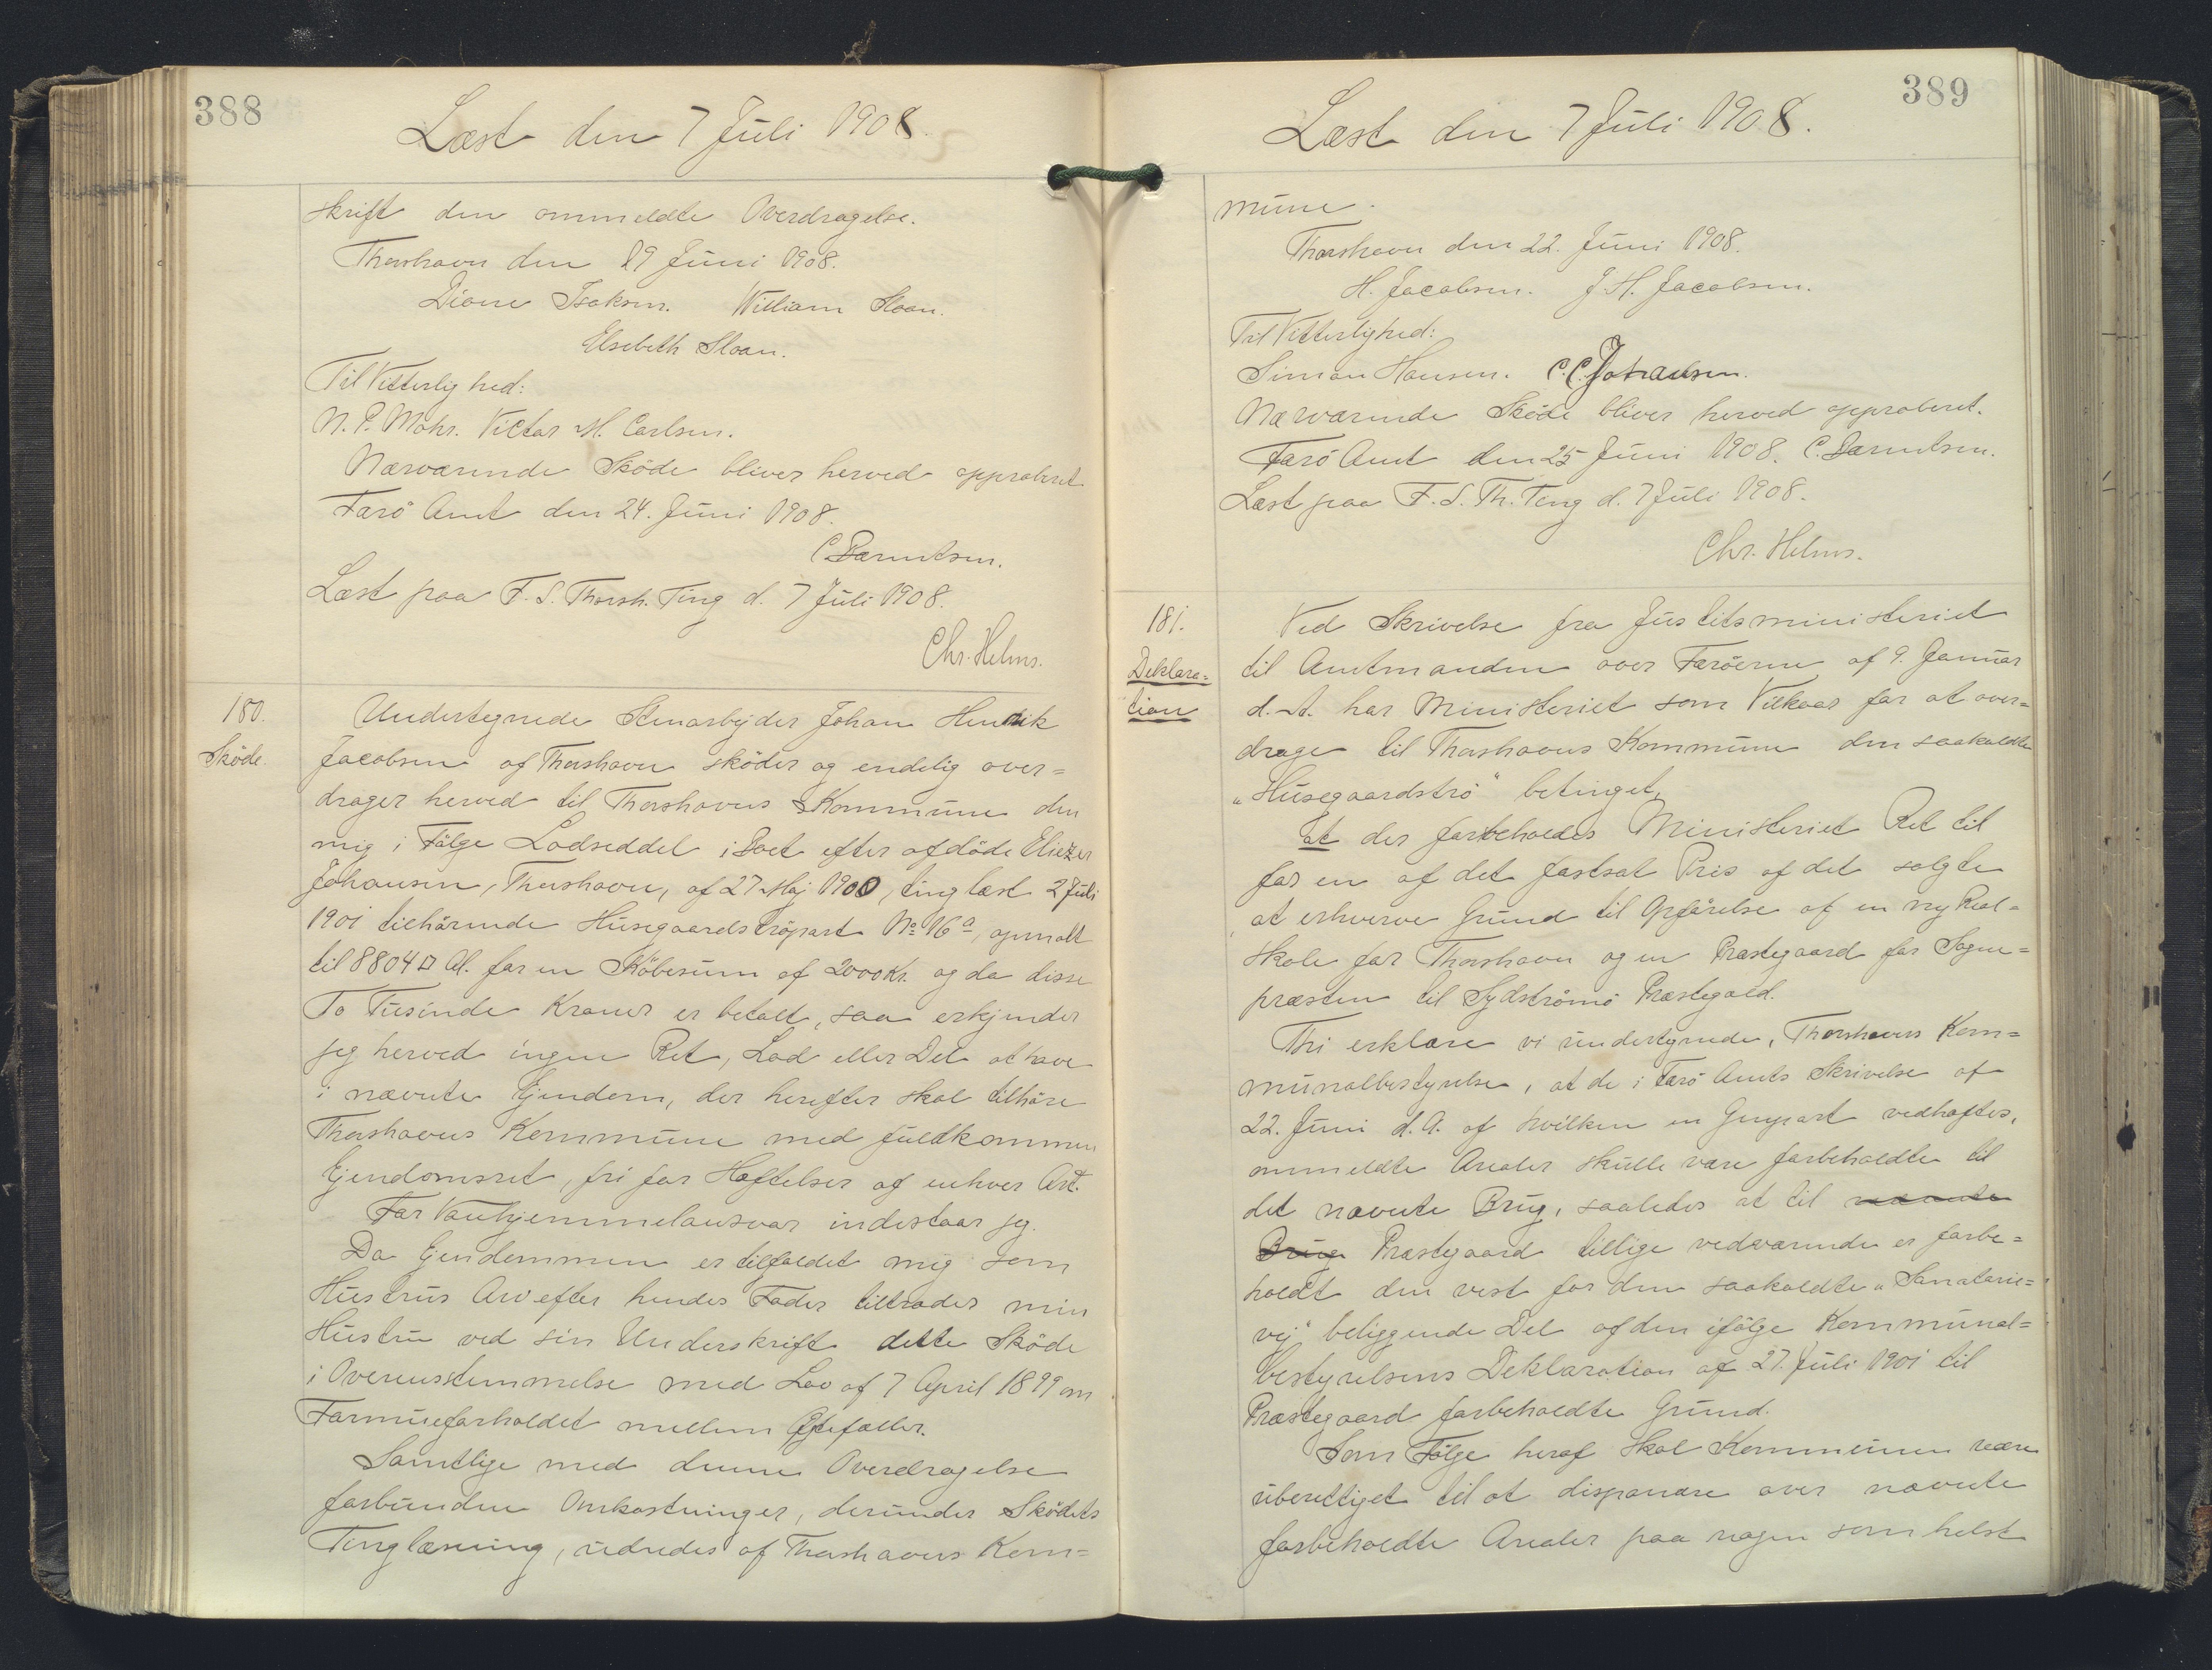 388
Læst den 7 Juli 1908.
skrift den ommeldte Overdragelse.
Thorshavn den 19 Juni 1908.
Diane Isaksen. William Sloan.
Elsebeth Sloan.
Til Vitterlighed:
N. P. Mohr. Victor M. Carlsen.
Nærværende Skøde bliver herved approberet
Færø Amt den 24. Juni 1908.
C Bærentsen.
Læst paa F. S. Thorsh. Ting d. 7 Juli 1908.
Chr. Helms.
180.
Skøde.
Undertegnede Stenarbejder Johan Hendrik
Jacobsen af Thorshavn skøder og endelig over=
drager herved til Thorshavns Kommune den
mig i Følge Lodseddel i Boet efter afdøde Eliezer
Johansen, Thorshavn, af 27 Maj 1900, tinglæst 2 Juli
1901 tilhørende Husegaardstrøpart No 16a, opmaalt
til 8804 □ Al. for en Købesum af 2000 Kr. og da disse
To Tusinde Kroner er betalt, saa erkjender
jeg herved ingen Ret, Lod eller Del at have
i nævnte Ejendom, der herefter skal tilhøre
Thorshavns Kommune med fuldkommen
Ejendomsret, fri for Hæftelser af enhver Art.
For Vanhjemmelansvar indestaar jeg.
Da Ejendommen er tilfaldet mig som
Hustrus Arv efter hendes Fader tiltræder min
Hustru ved sin Underskrift dette Skøde
i Overensstemmelse med Lov af 7 April 1899 om
Formueforholdet mellem Ægtefæller.
Samtlige med denne Overdragelse
forbundne Omkostninger, derunder Skødets
Tinglæsning, udredes af Thorshavns Kom=
389
Læst den 7 Juli 1908.
mune.
Thorshavn den 22. Juni 1908.
H. Jacobsen. J. H. Jacobsen.
Til Vitterlighed:
Simon Hansen. C. C. Johansen.
Nærværende Skøde bliver herved approberet.
Færø Amt den 25 Juni 1908. C. Bærentsen.
Læst paa F. S. Th. Ting d. 7 Juli 1908.
Chr. Helms.
181.
Deklara=
tion
Ved Skrivelse fra Justitsministeriet
til Amtmanden over Færøerne af 9. Januar
d. A. har Ministeriet som Vilkaar for at over=
drage til Thorshavns Kommune den saakaldte
"Husegaardstrø" betinget,
at der forbeholdes Ministeriet Ret til
for en af det fastsat Pris af det solgte
at erhverve Grund til Opførelse af en ny Real=
skole for Thorshavn og en Præstegaard for Sogne=
præsten til Sydstrømø Præstegæld.
Thi erklære vi undertegnede, Thorshavns Kom=
munalbestyrelse, at de i Færø Amts Skrivelse af
22. Juni d. A. af hvilken en Genpart vedhæftes,
ommeldte Arealer skulle være forbeholdte til
det nævnte Brug, saaledes at til nævnte
Brug Præstegaard tillige vedvarende er forbe=
holdt den vest for den saakaldte "Sanatorie=
vej" beliggende Del af den ifølge Kommunal=
bestyrelsens Deklaration af 27. Juli 1901 til
Præstegaard forbeholdte Grund.
Som Følge heraf skal Kommunen være
uberettiget til at disponere over nævnte
forbeholdte Arealer paa nogen somhelst